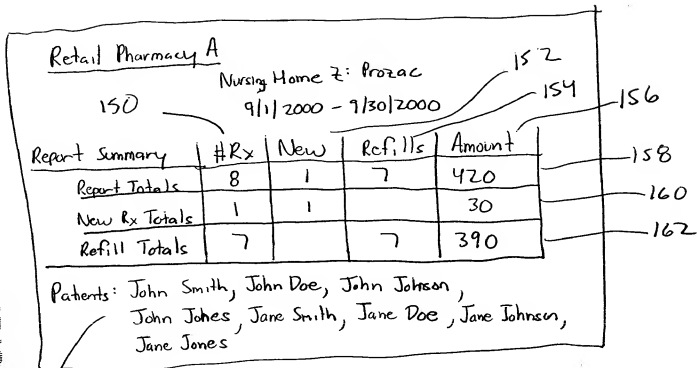 Retail Pharmacy A
Nursing Home Z: Prozac
152
150
9/1/2000 - 9/30/2000
154
156
Report Summary #Rx New Refills Amount
158
Report Totals 8 1 7 420
160
New Rx Totals 1 1 30
162
Refill Totals 7 7 390
Patients: John Smith, John Doe, John Johnson,
John Jones, Jane Smith, Jane Doe, Jane Johnson,
Jane Jones